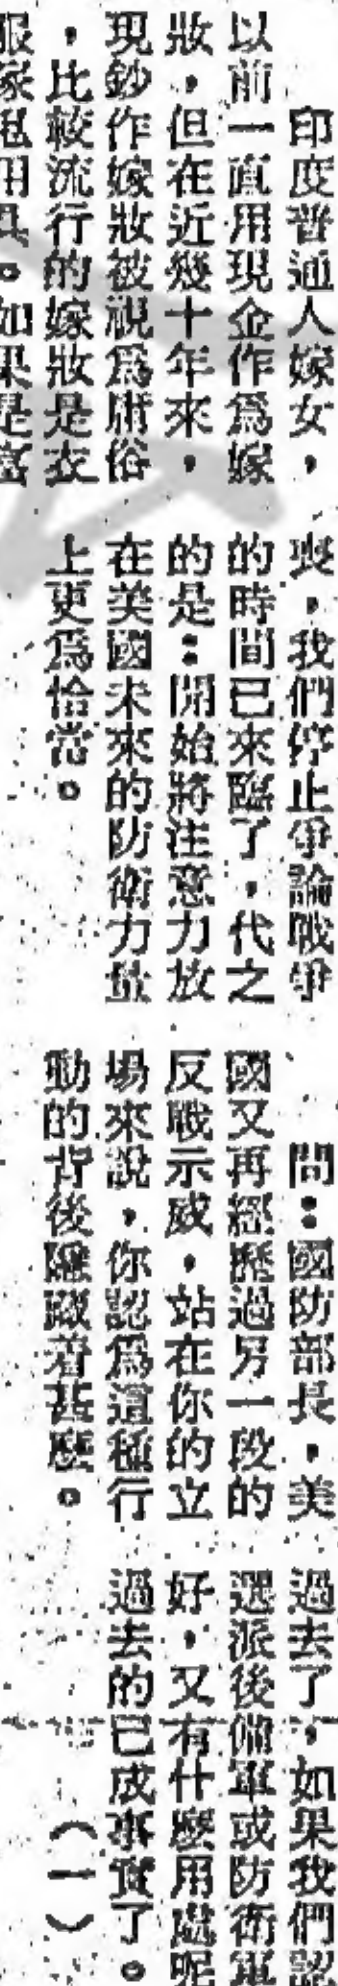 印度普通人嫁女，
以前一直用現金作爲嫁
妝，但在近幾十年來，
現鈔作嫁妝被視爲庸俗
，比較流行的嫁妝是衣
服家私用具。如果是富
喪，我們停止爭論戰爭
的時間已來臨了，代之
的是：開始將注意力放
在美國未來的防衛力量
上更爲恰當。
問：國防部長，美
國又再經歷過另一段的
反戰示威，站在你的立
場來說，你認爲這種行
動的背後隱藏着甚麼。
過去了，如果我們認
選派後備軍或防衛軍
好，又有什麼用處呢
過去的已成事實了。
（一）